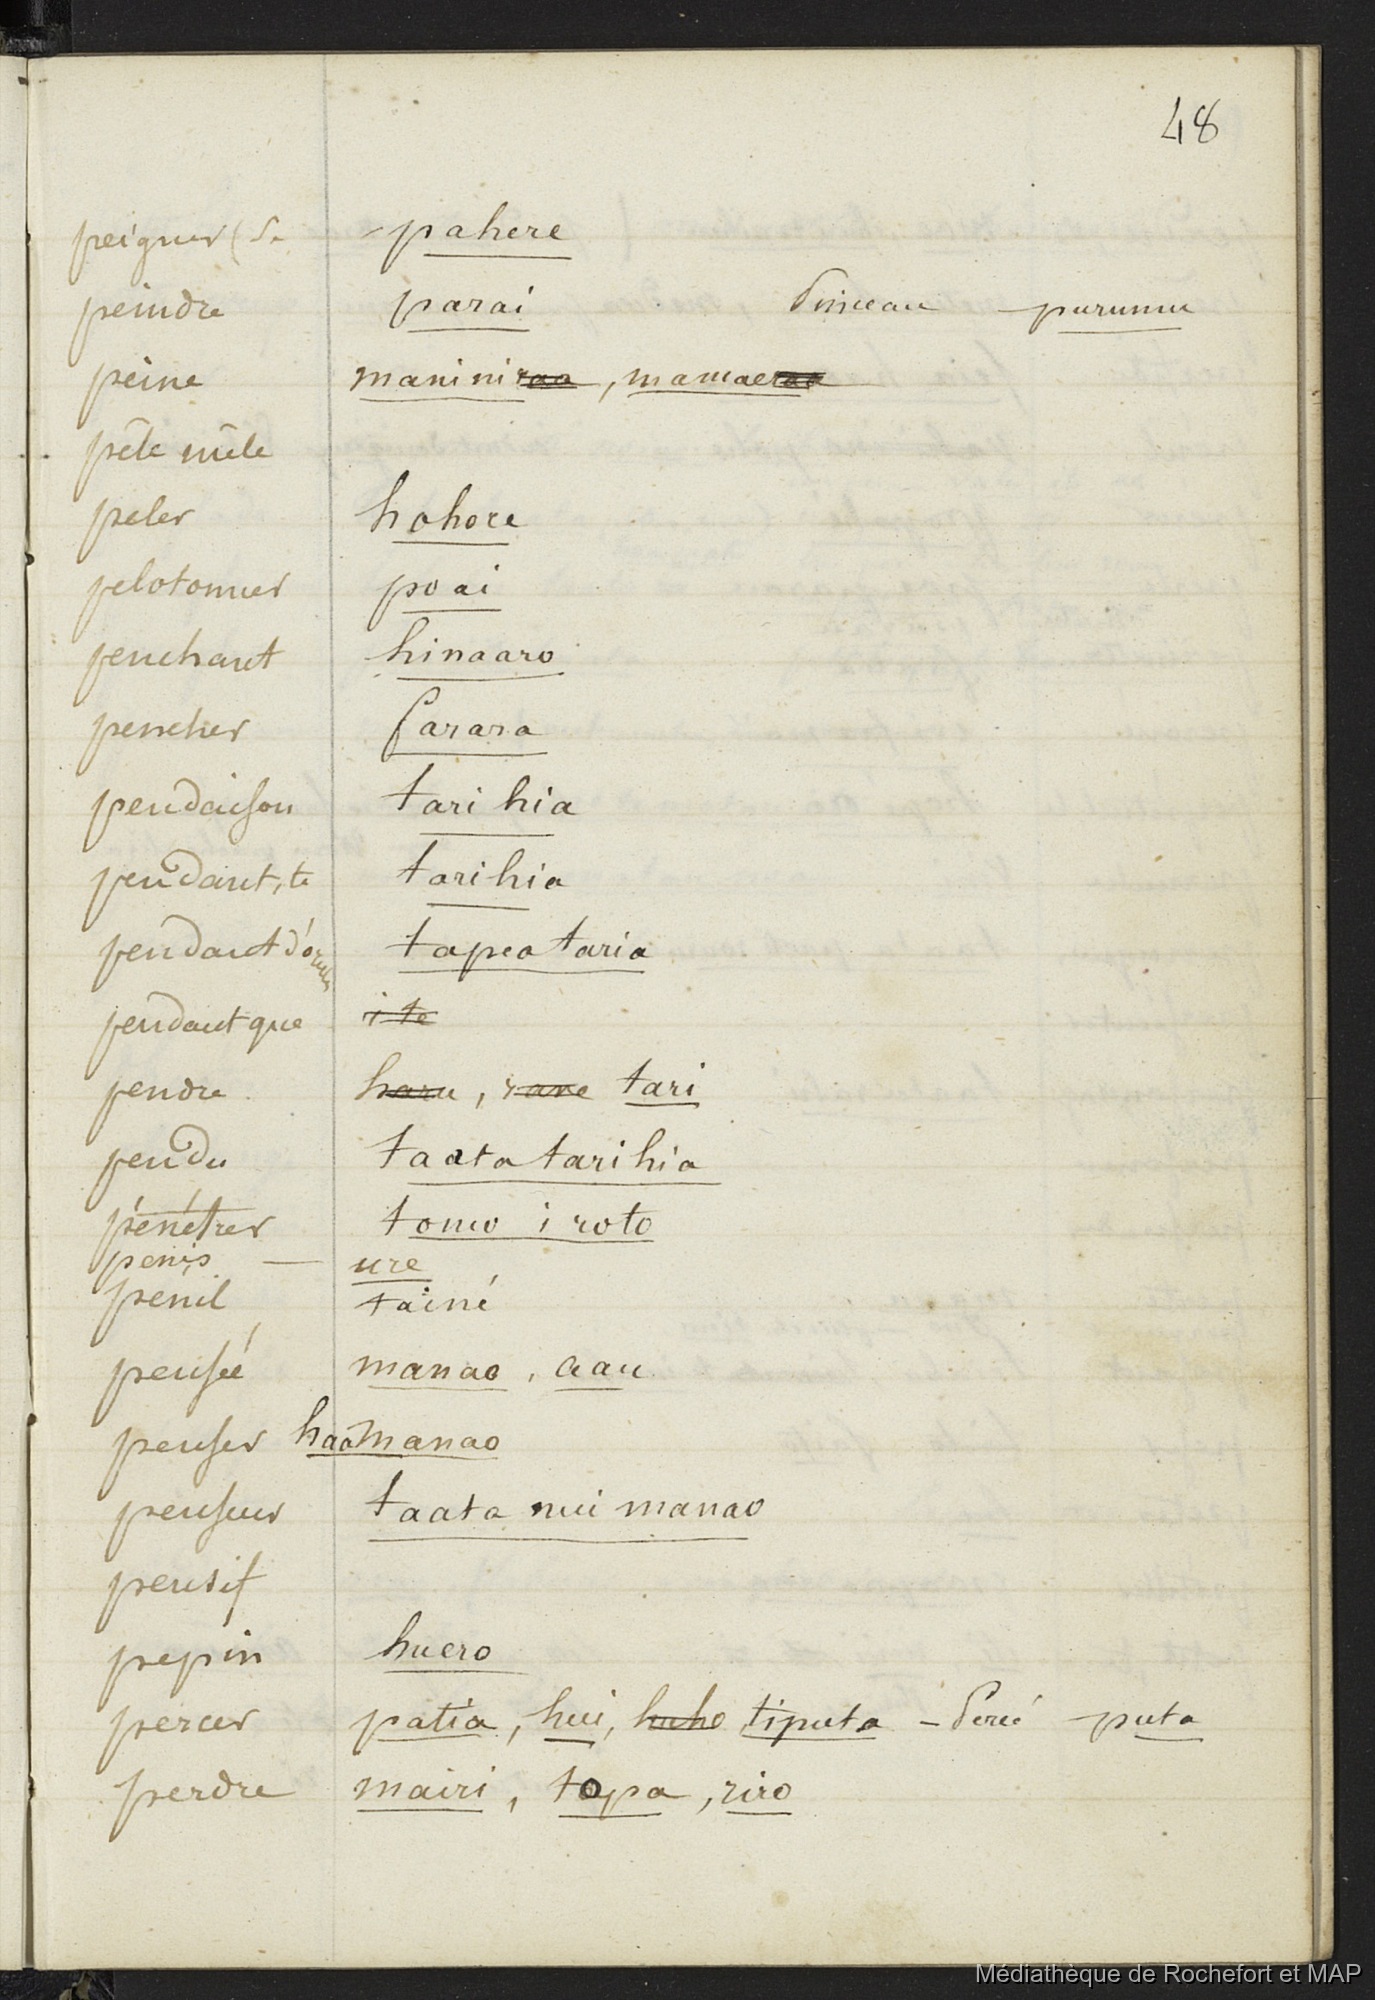 48
peigner (se pahere
peindre parai Pinceau purumu
peine maniniraa, mamaeraa
pêle mêle
peler hohore
pelotonner poai
penchant hinaaro
pencher farara
pendaison tarihia
pendant, te tarihia
pendant d'oreilles tapea taria
pendant que i te
pendre haru, rave tari
pendu taata tarihia
pénétrer tomo i roto
penis — ure
penil tainé
pensée manao, aau
penser haamanao
penseur taata nui manao
pensif
pepin huero
percer patia, hui, huho tiputa – Percé puta
perdre mairi, topa, riro
Médiathèque de Rochefort et MAP